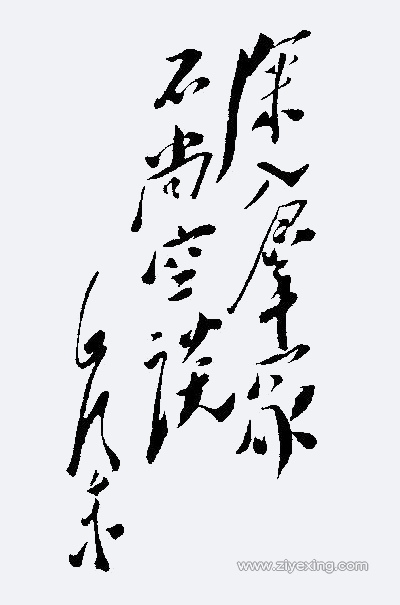 深入羣眾
不尚空談
毛澤東
www.ziyexing.com